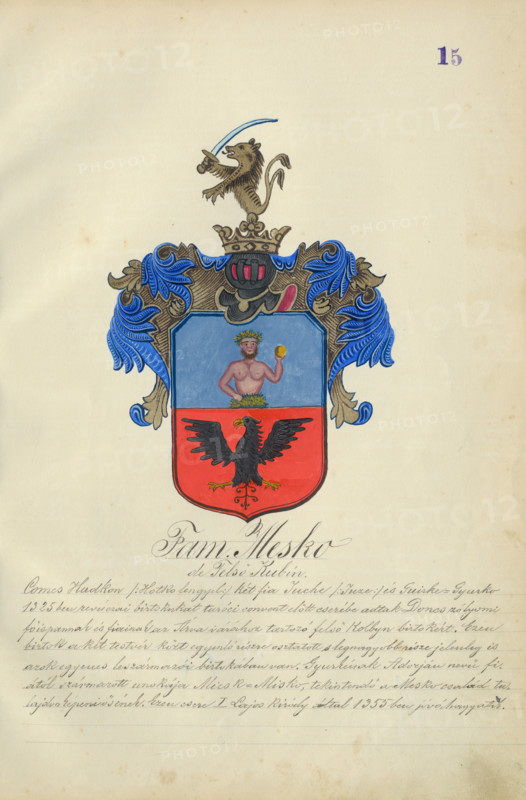 15
Fam. Mesko
de Felső Kubin.
Comes Hudkon /:Hotko lengyel:/ két fia Juche /:Jusze:/ és Guirke=Gyurko
1325 ben, revisnai birtokukat turóci convent előtt cserébe adtak Doncs zólyomi
főispannak és fiainak az Árva várához tartozó felső Kolbyn birtokért. Ezen
birtok a két testvér közt egyenlő részre osztatott s legnagyobb része jelenleg is
azok egyenes leszármazói birtokában van. Gyurkónak Adorján nevü fi=
ától származott unokája Micsk=Misko, tekintendő a Mesko család tu=
lajdonképeni ősének. Ezen csere I. Lajos király által 1355 ben jóváhagyatott.
PHOTO12